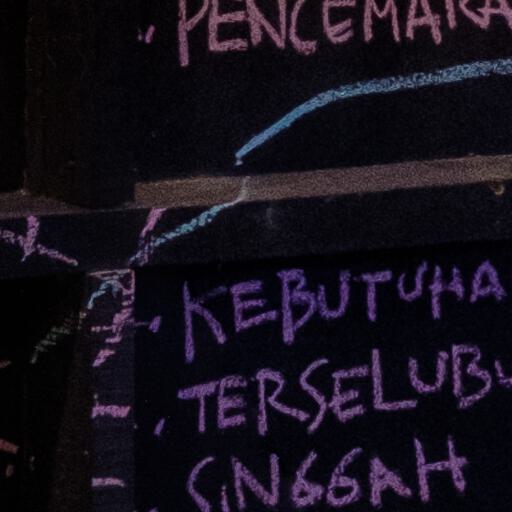 PENCEMARA
KEBUTUHA
TERSELUBU
SINGGAH